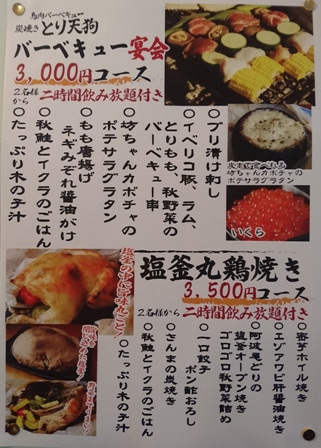 鳥肉バーベキュー
炭焼き とり天狗
バーベキュー宴会
3,000円コース
2名様から 二時間飲み放題付き
○ブリ漬け刺し
○イベリコ豚、ラム、
とりもも、秋野菜の
バーベキュー串
○坊ちゃんカボチャの
ポテサラグラタン
○もも唐揚げ
ネギみぞれ醤油がけ
○秋鮭とイクラのごはん
○たっぷり木の子汁
皮まで食べれる
坊ちゃんカボチャの
ポテサラグラタン
いくら
塩釜丸鶏焼き
3,500円コース
2名様から 二時間飲み放題付き
○雲丹ホイル焼き
○エゾアワビ肝醤油焼き
○阿波尾どりの
塩釜オーブン焼き
ゴロゴロ秋野菜詰め
○一口餃子
ポン酢おろし
○さんまの炭焼き
○秋鮭とイクラのごはん
○たっぷり木の子汁